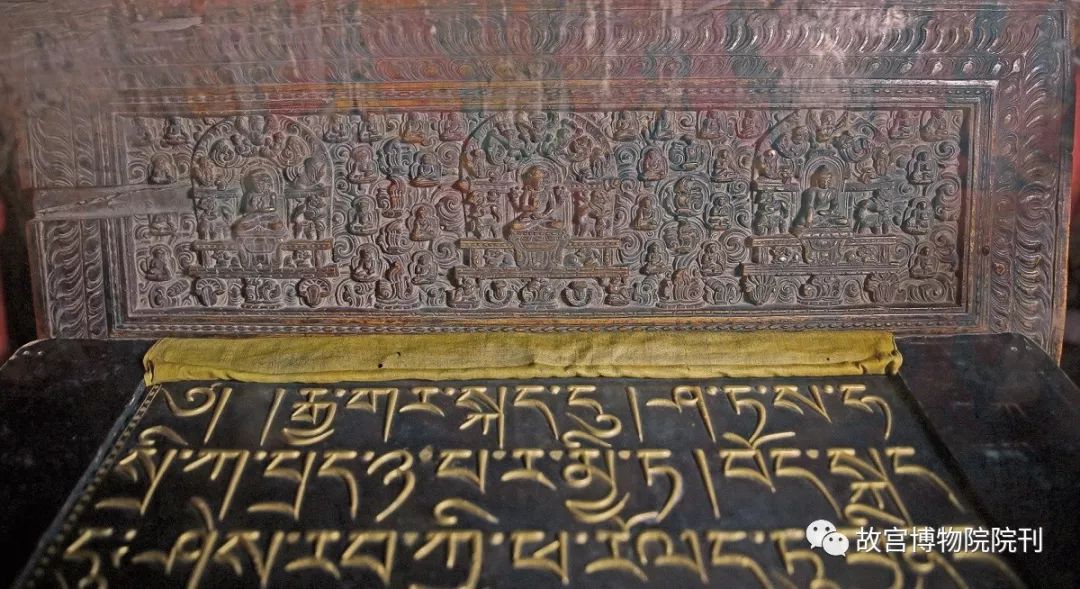 ། །རྒྱ་གར་སྐད་དུ། ཤ་ཏ་ས་ཧ
སྲི་ཀ་པྲ་ཛྙཱ་པཱ་ར་མི་ཏ། བོད་སྐད་
དུ། ཤེས་རབ་ཀྱི་ཕ་རོལ་
故宫博物院院刊